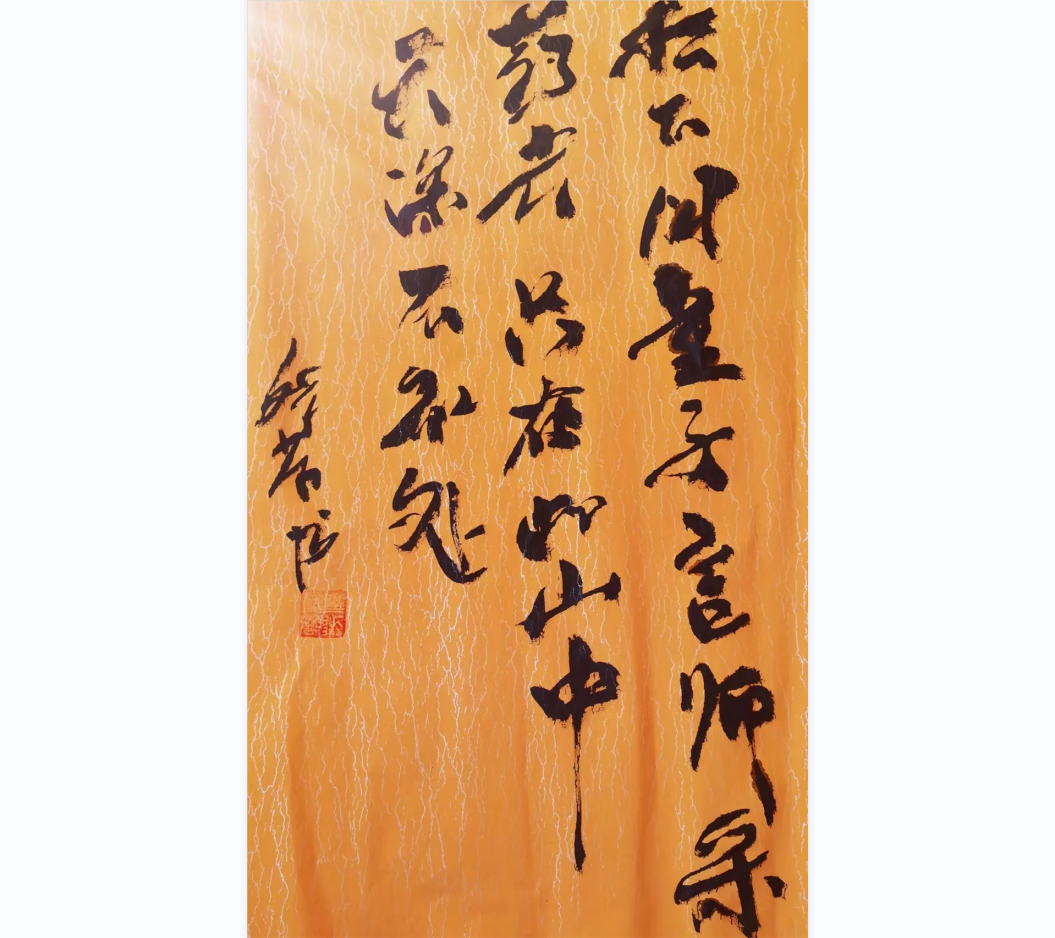 松下问童子言师采
药去只在此山中
云深不知处